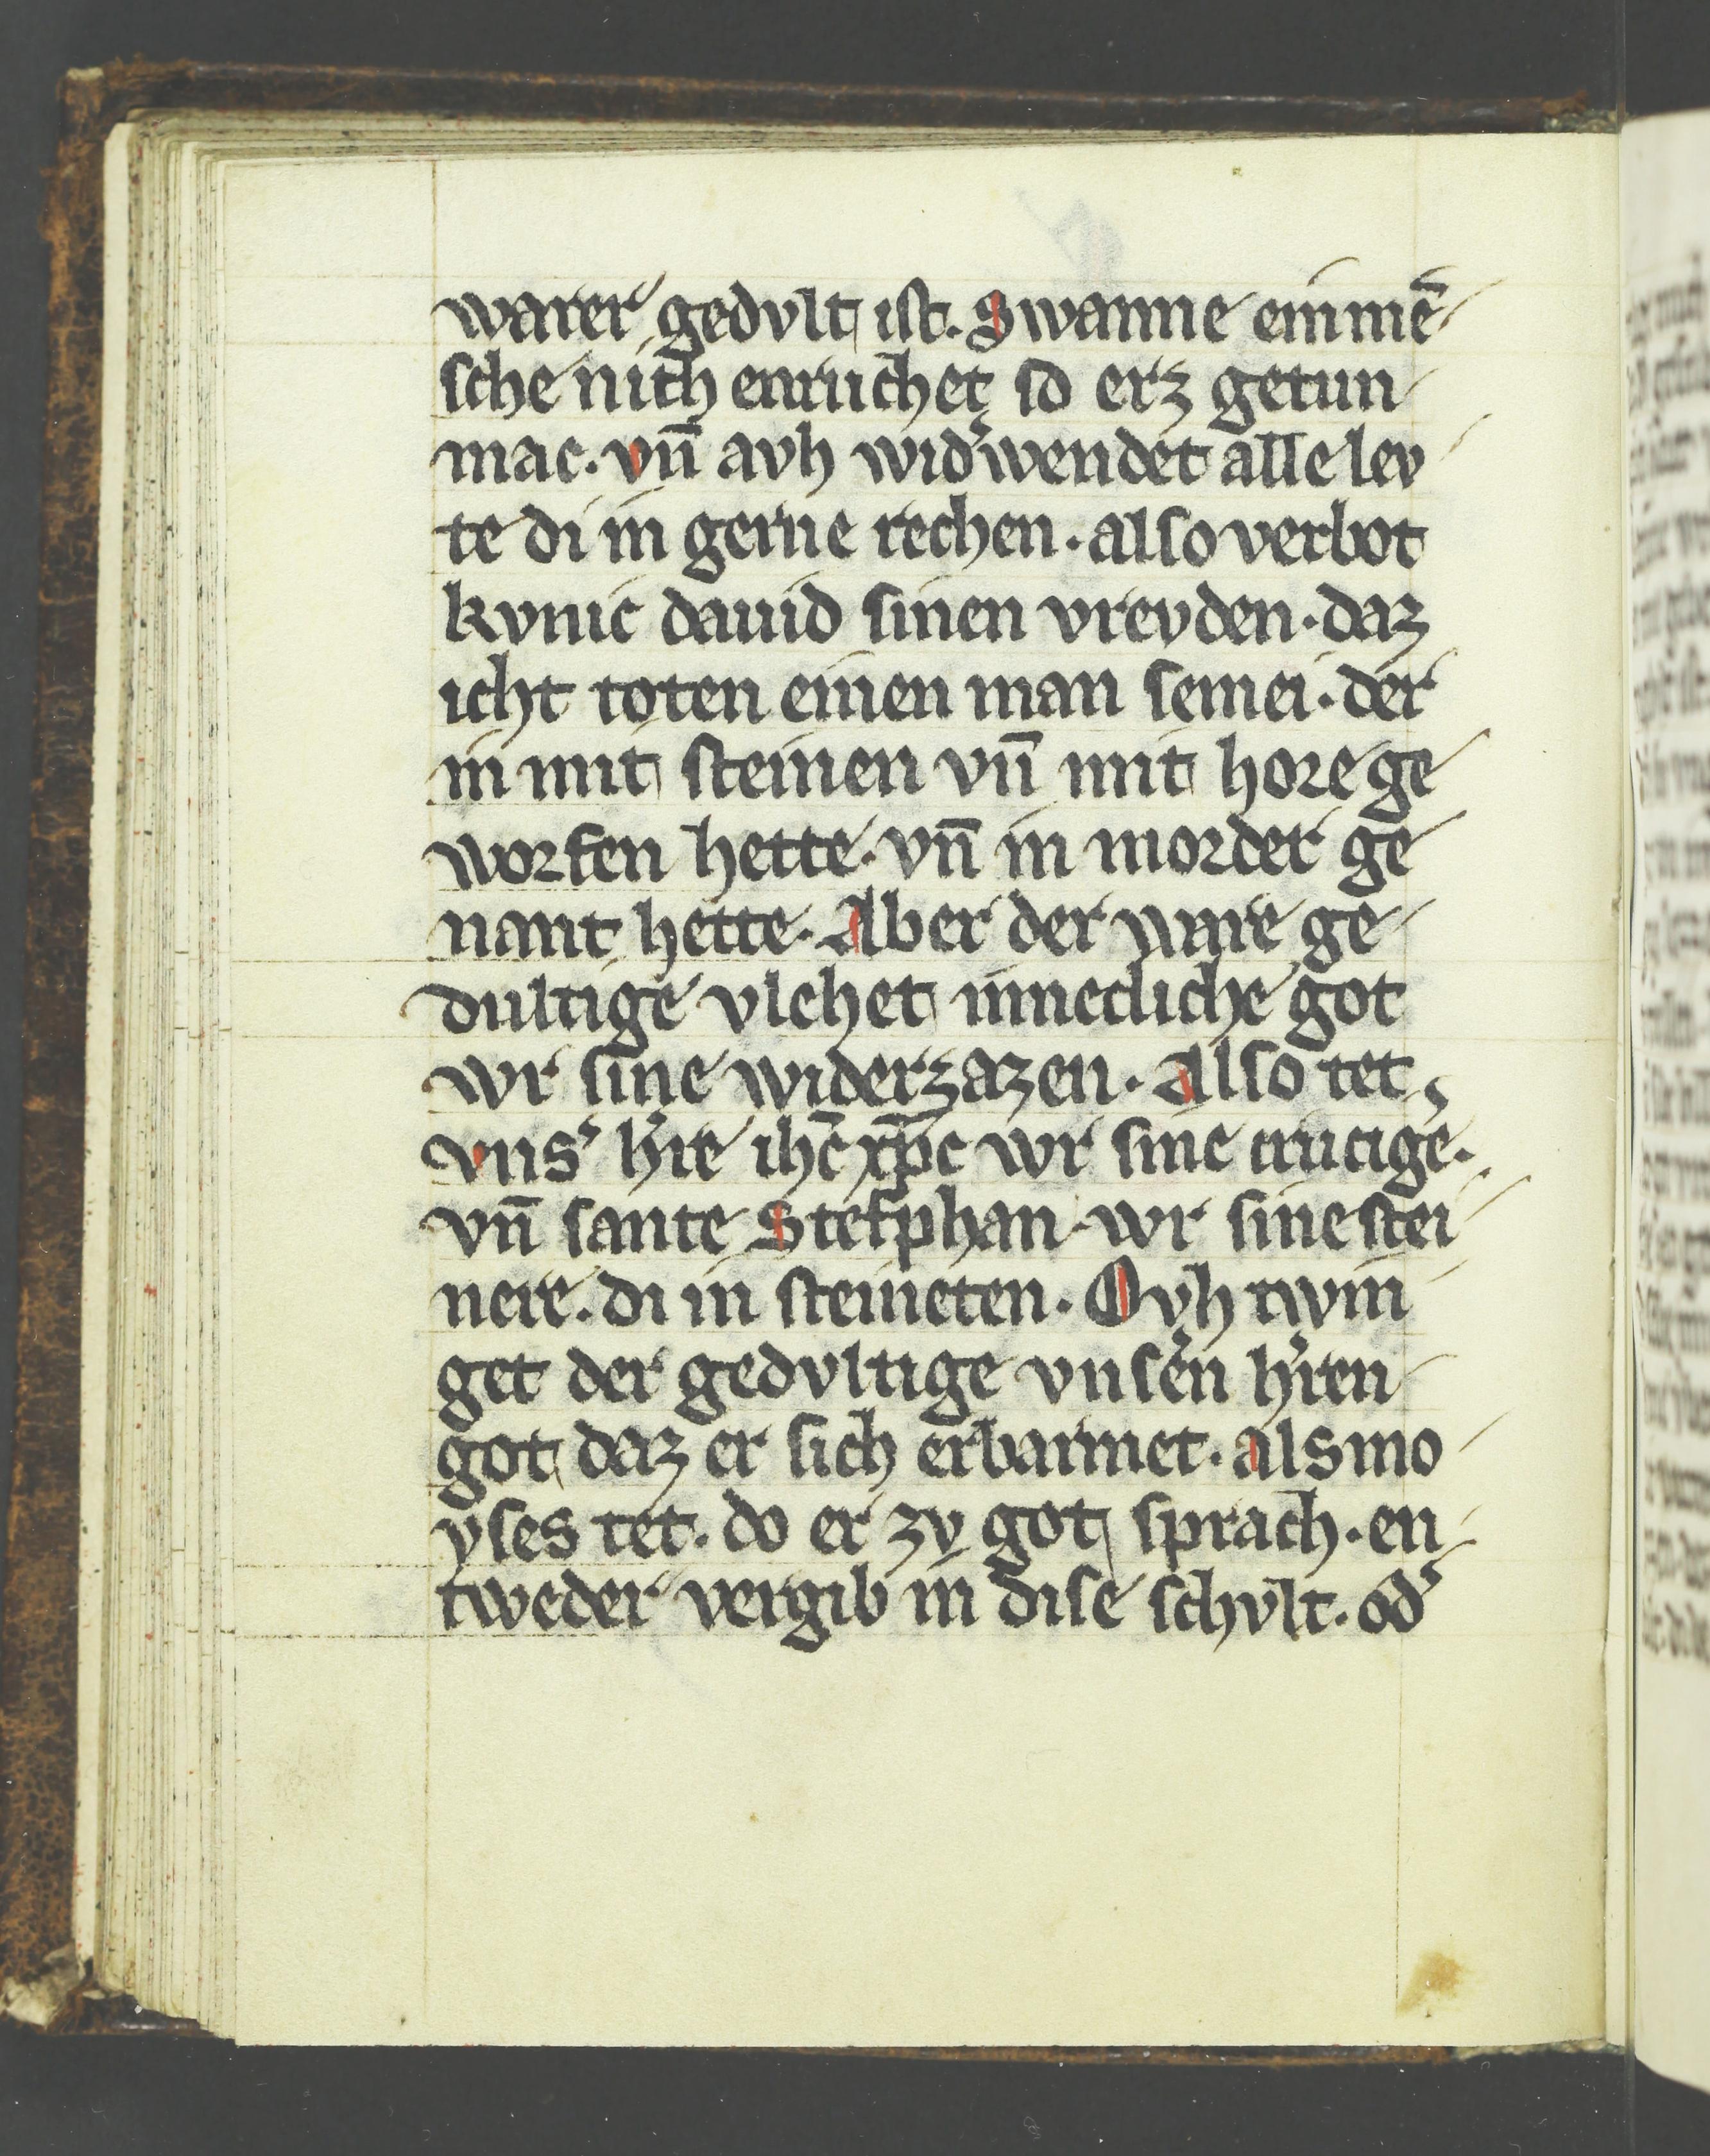 warer gedvlt ist. Swanne ein mē
sche nith enruchet so erz getun
mac. vn̄ avh widˀwendet alle lev
te di in gerne rechen. also verbot
kvnic dauid sinen vrevden. daz
icht toten einen man semei. der
in mit steinen vn̄ mit hore ge
worfen hette. vn̄ in morder ge
nant hette. Aber der ware ge
dultige vlehet innecliche got
wr sine widersazen. Also tet
vnsˀ hˀre ih̄c xp̄c wr sine crucige.
vn̄ sante Stefphan wr sine stei
nere. di in steineten. Ovh twin
get der gedvltige vnsern hˀren
got daz er sich erbarmet. als mo
yses tet. do er zv got sprach. en
tweder vergib in dise schvlt. odˀ